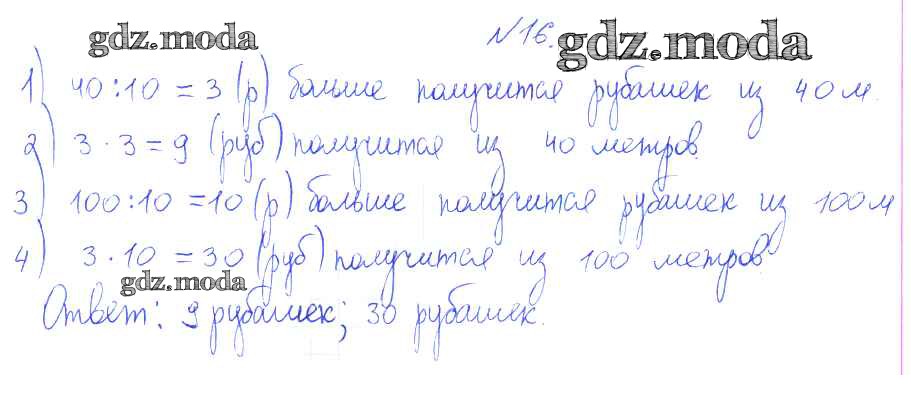 gdz.moda
№16.
gdz.moda
1) 40:10 = 3 (р) больше получится рубашек из 40 м.
2) 3·3=9 (руб) получится из 40 метров.
3) 100:10 =10 (р) больше получится рубашек из 100м
4) 3·10 = 30 (руб) получится из 100 метров.
gdz.moda
Ответ: 9 рубашек; 30 рубашек.